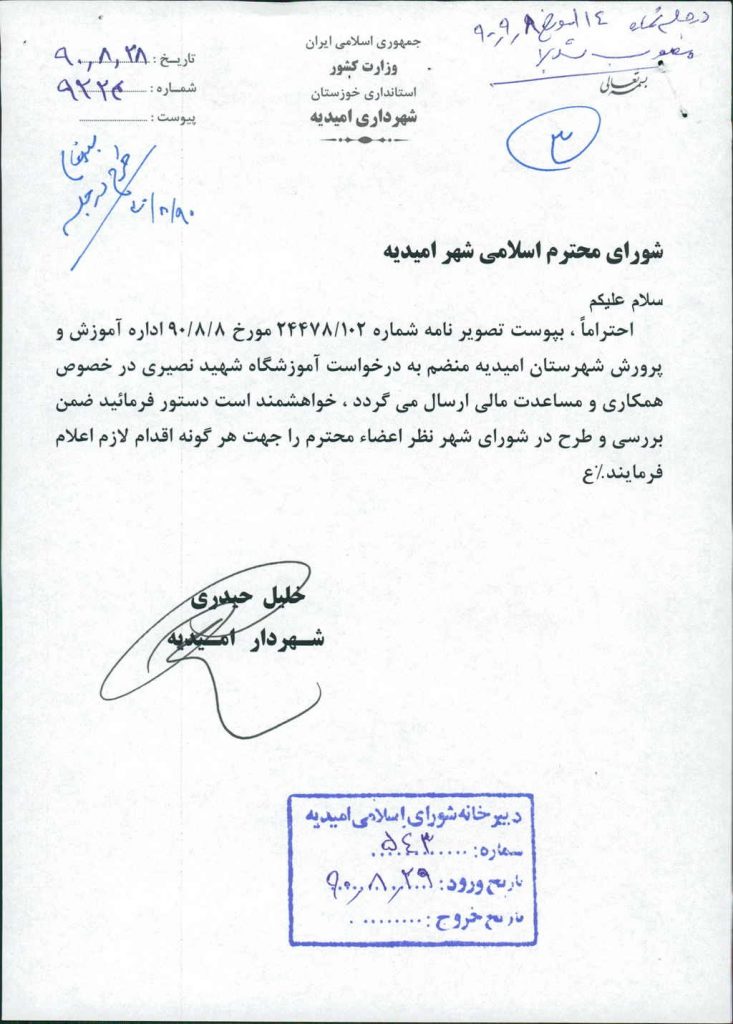 در جلسه شماره ١٤ مورخ ٩٠,٩,٨
مصوب شد
بسمه تعالی
٣
جمهوری اسلامی ایران
وزارت کشور
استانداری خوزستان
شهرداری امیدیه
تاریخ : ٩٠,٨,٢٨
شماره : ٩٢٢٤
پیوست :
طرح در جلسه
شورای محترم اسلامی شهر امیدیه
سلام علیکم
احتراماً ، بپیوست تصویر نامه شماره ۲۴۴۷۸/۱۰۲ مورخ ۹۰/۸/۸ اداره آموزش و
پرورش شهرستان امیدیه منضم به درخواست آموزشگاه شهید نصیری در خصوص
همکاری و مساعدت مالی ارسال می گردد ، خواهشمند است دستور فرمائید ضمن
بررسی و طرح در شورای شهر نظر اعضاء محترم را جهت هر گونه اقدام لازم اعلام
فرمایند./ع
خلیل حیدری
شهردار امیدیه
دبیرخانه شورای اسلامی امیدیه
شماره: ٥٤٣
تاریخ ورود: ٩٠,٨,٢٩
تاریخ خروج: